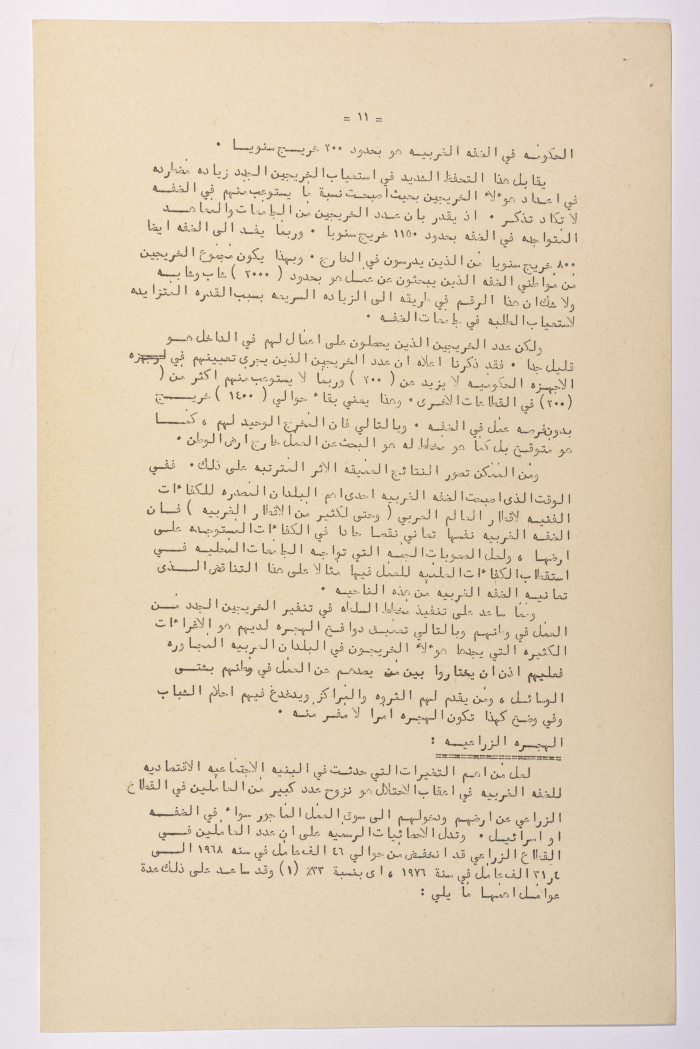 = ١١ =
الحكومه في الضفه الغربيه هو بحدود ٢٠٠ خريـج سنويـا ٠
يقابل هذا التحفظ الشديد في استيعاب الخريجين الجدد زياده مضطرده
في اعداد هوءلاء الخريجين بحيث اصبحت نسبة ما يستوعب منهم في الضفـه
لا تكاد تذكـر ٠ اذ يقدر بان عدد الخريجين من الجامعات والمعاهـد
المتواجده في الضفه بحدود ١١٥٠ خريج سنويا ٠ وربما يفـد الى الضفه ايضا
٨٠٠ خريج سنويا من الذين يدرسون في الخارج ٠ وبهذا يكون مجموع الخريجين
من مواطني الضفه الذين يبحثون عن عمـل هو بحدود ( ٢٠٠٠ ) شاب وشابـه
ولا شك ان هذا الرقم في طريقه الى الزياده السريعه بسبب القدره المتزايده
لاستيعاب الطلبه في جامعات الضفـه ٠
ولكن عدد الخريجين الذين يحصلون على اعمال لهم في الداخل هـو
قليل جدا ٠ فقد ذكرنا اعلاه ان عدد الخريجين الذين يجرى تعيينهم في
الاجهزه الحكوميه لا يزيد عن ( ٢٠٠ ) وربما لا يستوعب منهم اكثر من (
(٢٠٠) في القطاعات الاخرى ٠ وهذا يعني بقاء حوالي ( ١٤٠٠ ) خريـــج
بدون فرصه عمل في الضفـه ٠ وبالتالي فان المخرج الوحيد لهم ، كمـــا
هو متوقـع بل كما هو مخطط له هو البحث عن العمل خارج ارض الوطن ٠
ومن الممكن تصور النتائج العميقه الاثر المترتبه على ذلك ٠ ففـي
الوقت الذى اصبحت الضفه الغربيه احدى اهم البلدان المصدره للكفاءات
الفنيه لاقطار العالم العربي ( وحتى لكثير من الاقطار الغربيه ) فـان
الضفه الغربيه نفسها تعاني نقصا حادا في الكفاءات المستوجده علـى
ارضهـا ، ولعل الصعوبات الجمه التي تواجه الجامعات المحليه فـــي
استقطاب الكفاءات العلميه للعمل فيها مثالا على هذا التناقض الــذى
تعانيه الضفه الغربيه من هذه الناحيـه ٠
ومما ساعد على تنفيذ مخطط السلطه في تنفير الخريجين الجدد مـن
العمل في وطنهم وبالتالي تعميـق دوافـع الهجره لديهم هو الاغراءات
الكثيره التي يجدها هوءلاء الخريجون في البلدان العربيه المجاوره
فعليهم اذن ان يختاروا بين من يصدهم عن العمل في وطنهم بشتــى
الوسائـل ، ومن يقدم لهم الثروه والمراكز ويدغدغ فيهم احلام الشباب
وفي وضع كهذا تكون الهجره امرا لا مفـر منـه ٠
الهجـره الزراعيــه :
لعل من اهـم التغيرات التي حدثـت في البنيه الاجتماعيه الاقتصاديه
للضفه الغربيه في اعقاب الاحتلال هو نزوح عدد كبير من العاملين في القطاع
الزراعي عن ارضهـم ودخولهـم الى سوق العمل المأجور سواء في الضفــه
او اسرائيـل ٠ وتدل الاحصائيات الرسميه على ان عدد العاملين فــي
القطاع الزراعي قد انخفض من حوالي ٤٦ الف عامل في سنه ١٩٦٨ الـــى
٣١ر٤ الف عامل في سنة ١٩٧٦ ، اى بنسبة ٣٣٪ (١) وقد ساعـد على ذلك عدة
عوامـل اهمهـا ما يلي :